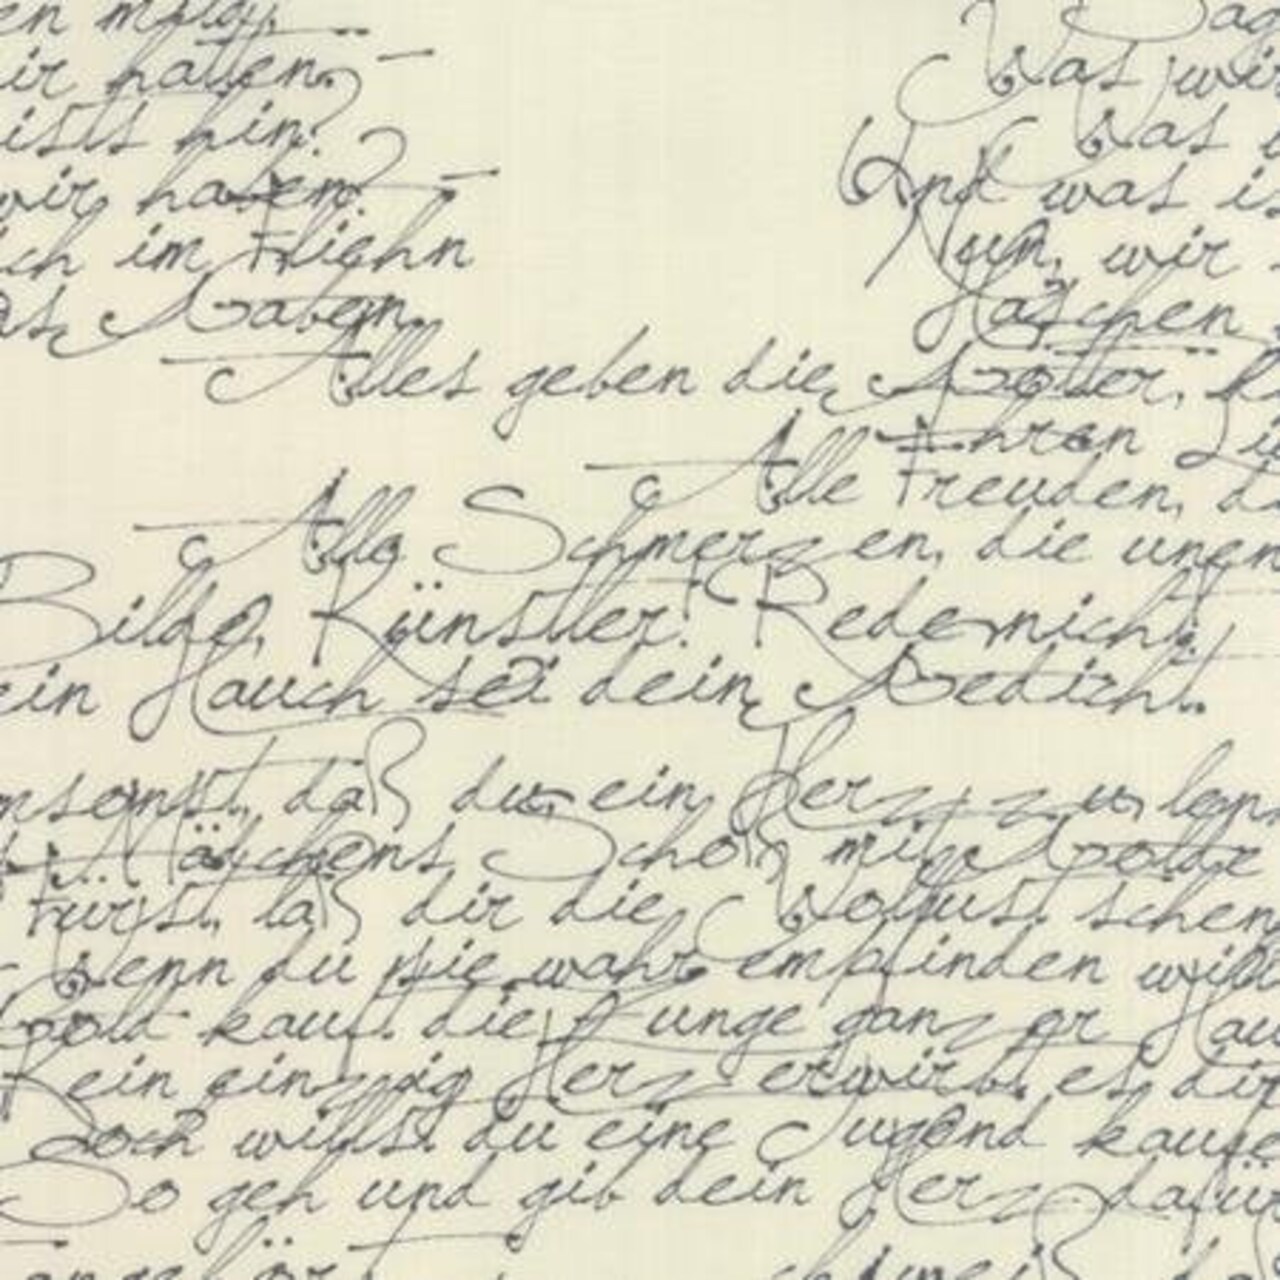 ir haben,
ists hin?
wir haben?
ich im Fliehn
as Gaben.
Was wir
Was
Und was is
Nun, wir
Haschen
Alles geben die Götter,
Ihren
Alle Freuden, d
Alle Schmerzen, die unen
Bilde, Künstler! Rede nicht!
ein Hauch sei dein Gedicht.
msonst, daß du, ein Herz zu len
Mädchens Schoß mit Golde
Fürst, laß dir die Wollust schen
Wenn du sie wahr empfinden will
Gold kauft die Zunge ganzer Hau
Kein einzig Herz erwirbt es dir
Doch willst du eine Tugend kaufe
So geh und gib dein Herz dafür